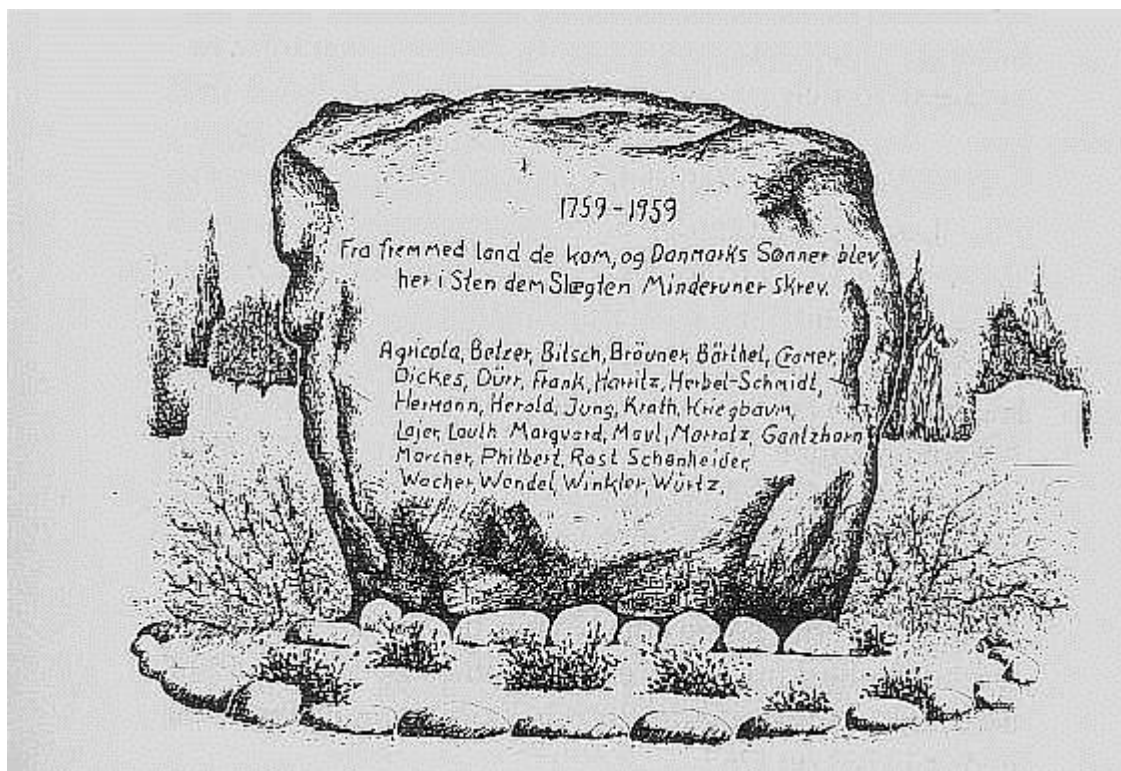 1759-1959
Fra fremmed land de kom, og Danmarks Sønner blev
her i Sten dem Slægten Minderuner skrev.
Agricola, Betzer, Bitsch, Bräuner, Bärthel, Cramer,
Dickes, Dürr, Frank, Harritz, Herbel-Schmidt,
Hermann, Herold, Jung, Krath, Kriegbaum,
Lajer, Lauth Marqvard, Maul, Marratz, Gantzhorn
Morcher, Philbert, Rast Schønheider,
Wacher, Wendel, Winkler, Würtz,